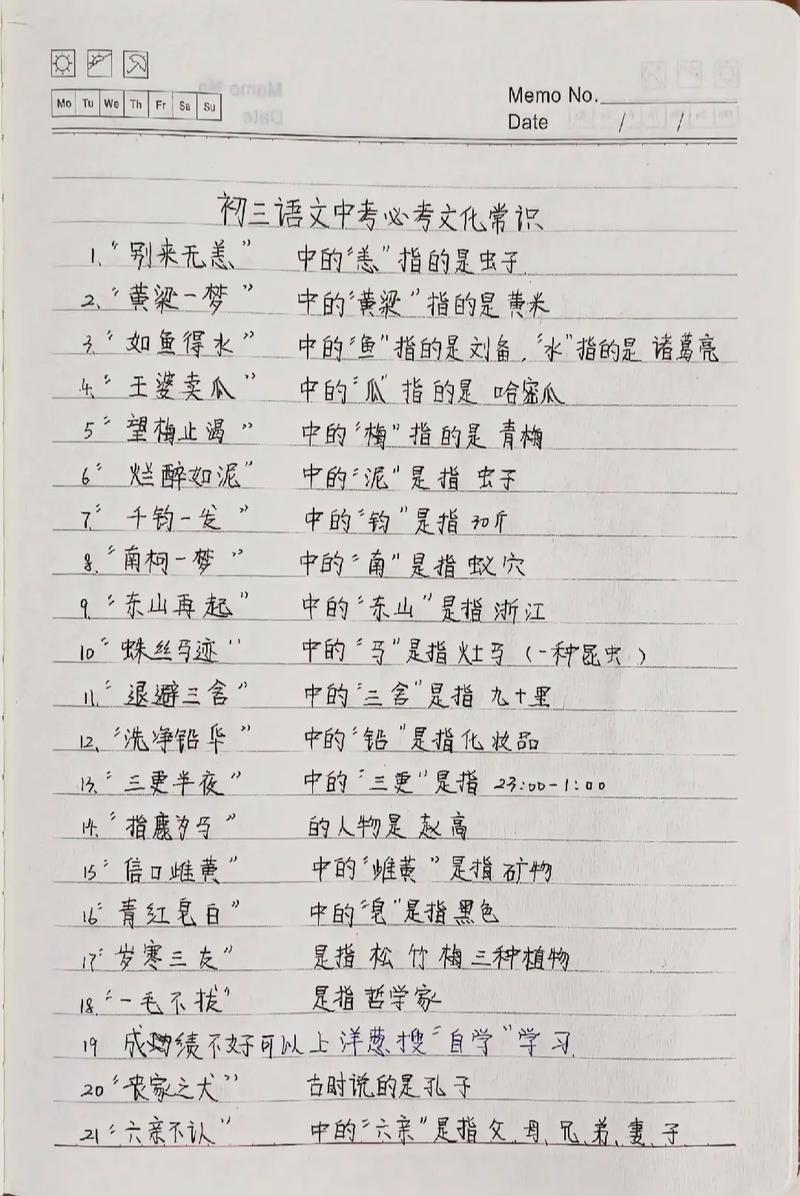 Mo Tu We Th Fr Sa Su
Memo No.
Date / /
初三语文中考必考文化常识
1、“别来无恙” 中的“恙”指的是虫子
2、“黄粱一梦” 中的“黄粱”指的是黄米
3、“如鱼得水” 中的“鱼”指的是刘备，“水”指的是诸葛亮
4、“王婆卖瓜” 中的“瓜”指的是 哈密瓜
5“望梅止渴” 中的“梅”指的是 青梅
6“烂醉如泥” 中的“泥”是指 虫子
7“千钧一发” 中的“钧”是指 30斤
8、“南柯一梦” 中的“南”是指 蚁穴
9、“东山再起” 中的“东山”是指 浙江
10“蛛丝马迹” 中的“马”是指 灶马（一种昆虫）
11、“退避三舍” 中的“三舍”是指 九十里
12、“洗净铅华” 中的“铅”是指化妆品
13、“三更半夜” 中的“三更”是指 23:00-1:00
14、“指鹿为马” 的人物是 赵高
15“信口雌黄” 中的“雌黄”是指矿物
16“青红皂白” 中的“皂”是指黑色
17“岁寒三友” 是指 松 竹 梅 三种植物
18、“一毛不拔” 是指 哲学家
19 成绩不好可以上洋葱搜“自学”学习
20“丧家之犬” 古时说的是孔子
21“六亲不认” 中的“六亲”是指父、母、兄、弟、妻、子